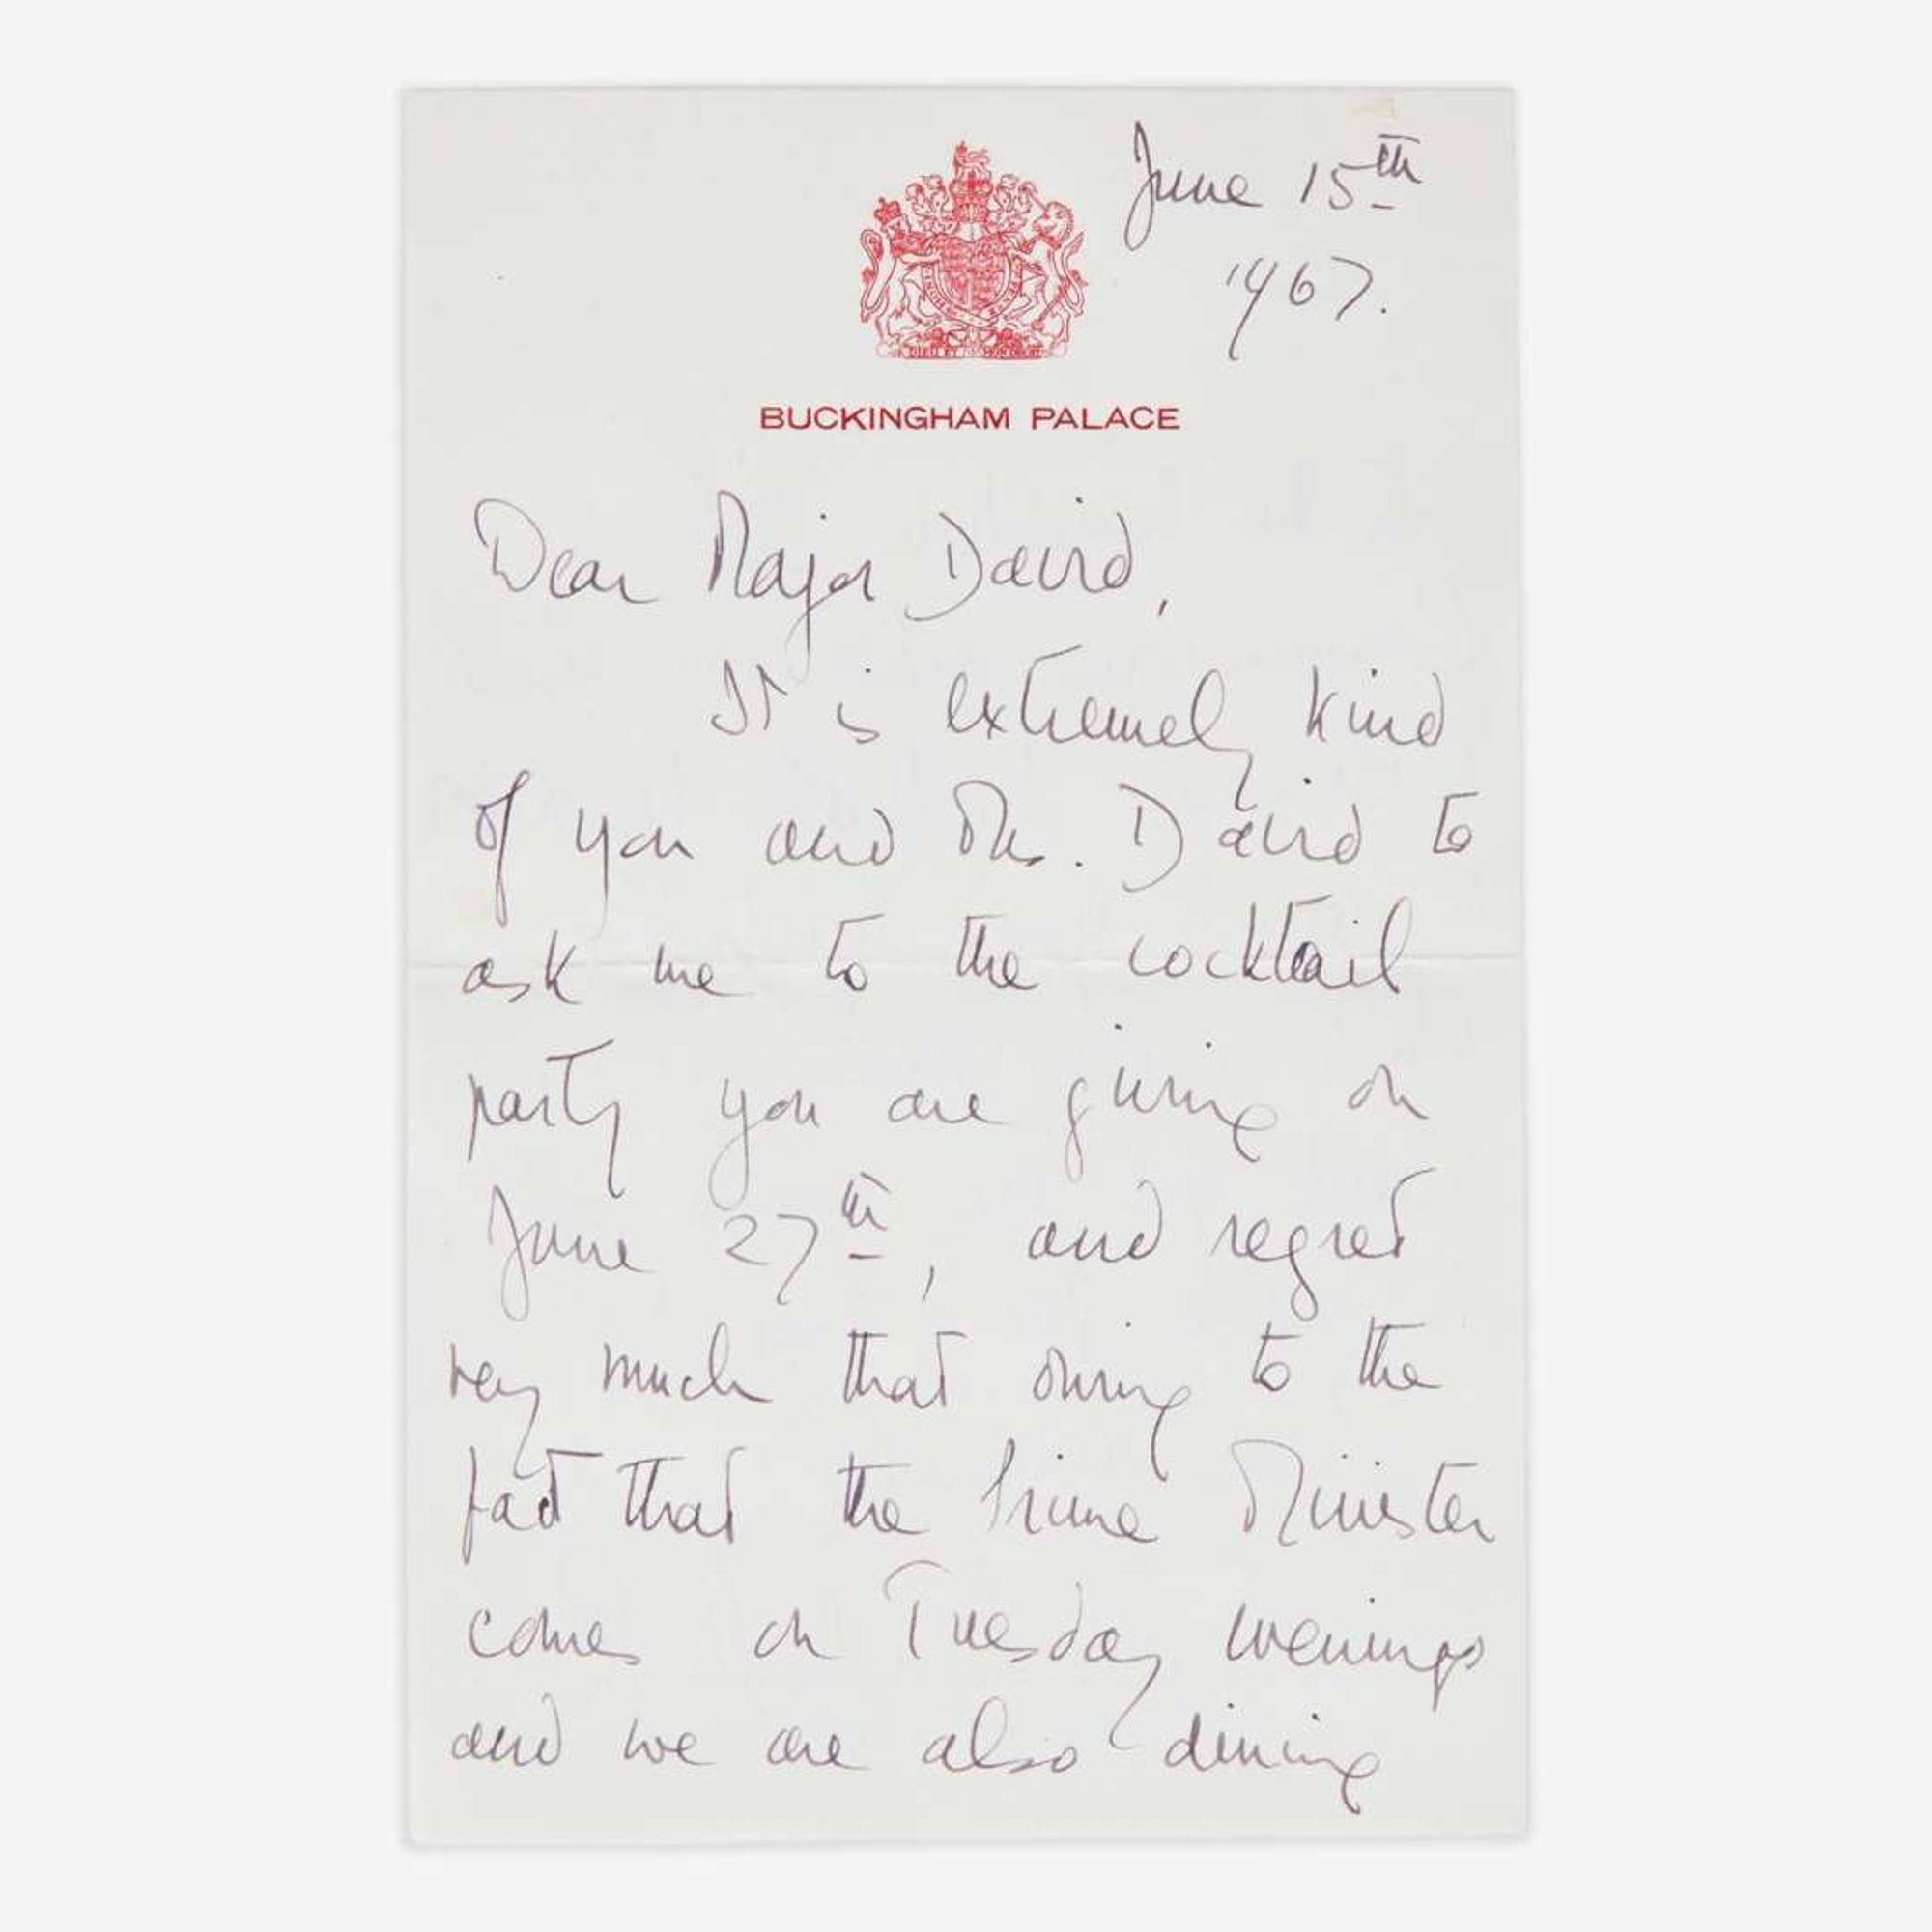 June 15th
1967.
BUCKINGHAM PALACE
Dear Major David,
It is extremely kind
of you and Mrs. David to
ask me to the cocktail
party you are giving on
June 27th, and regret
very much that owing to the
fact that the Prime Minister
comes on Tuesday evenings
and we are also dining